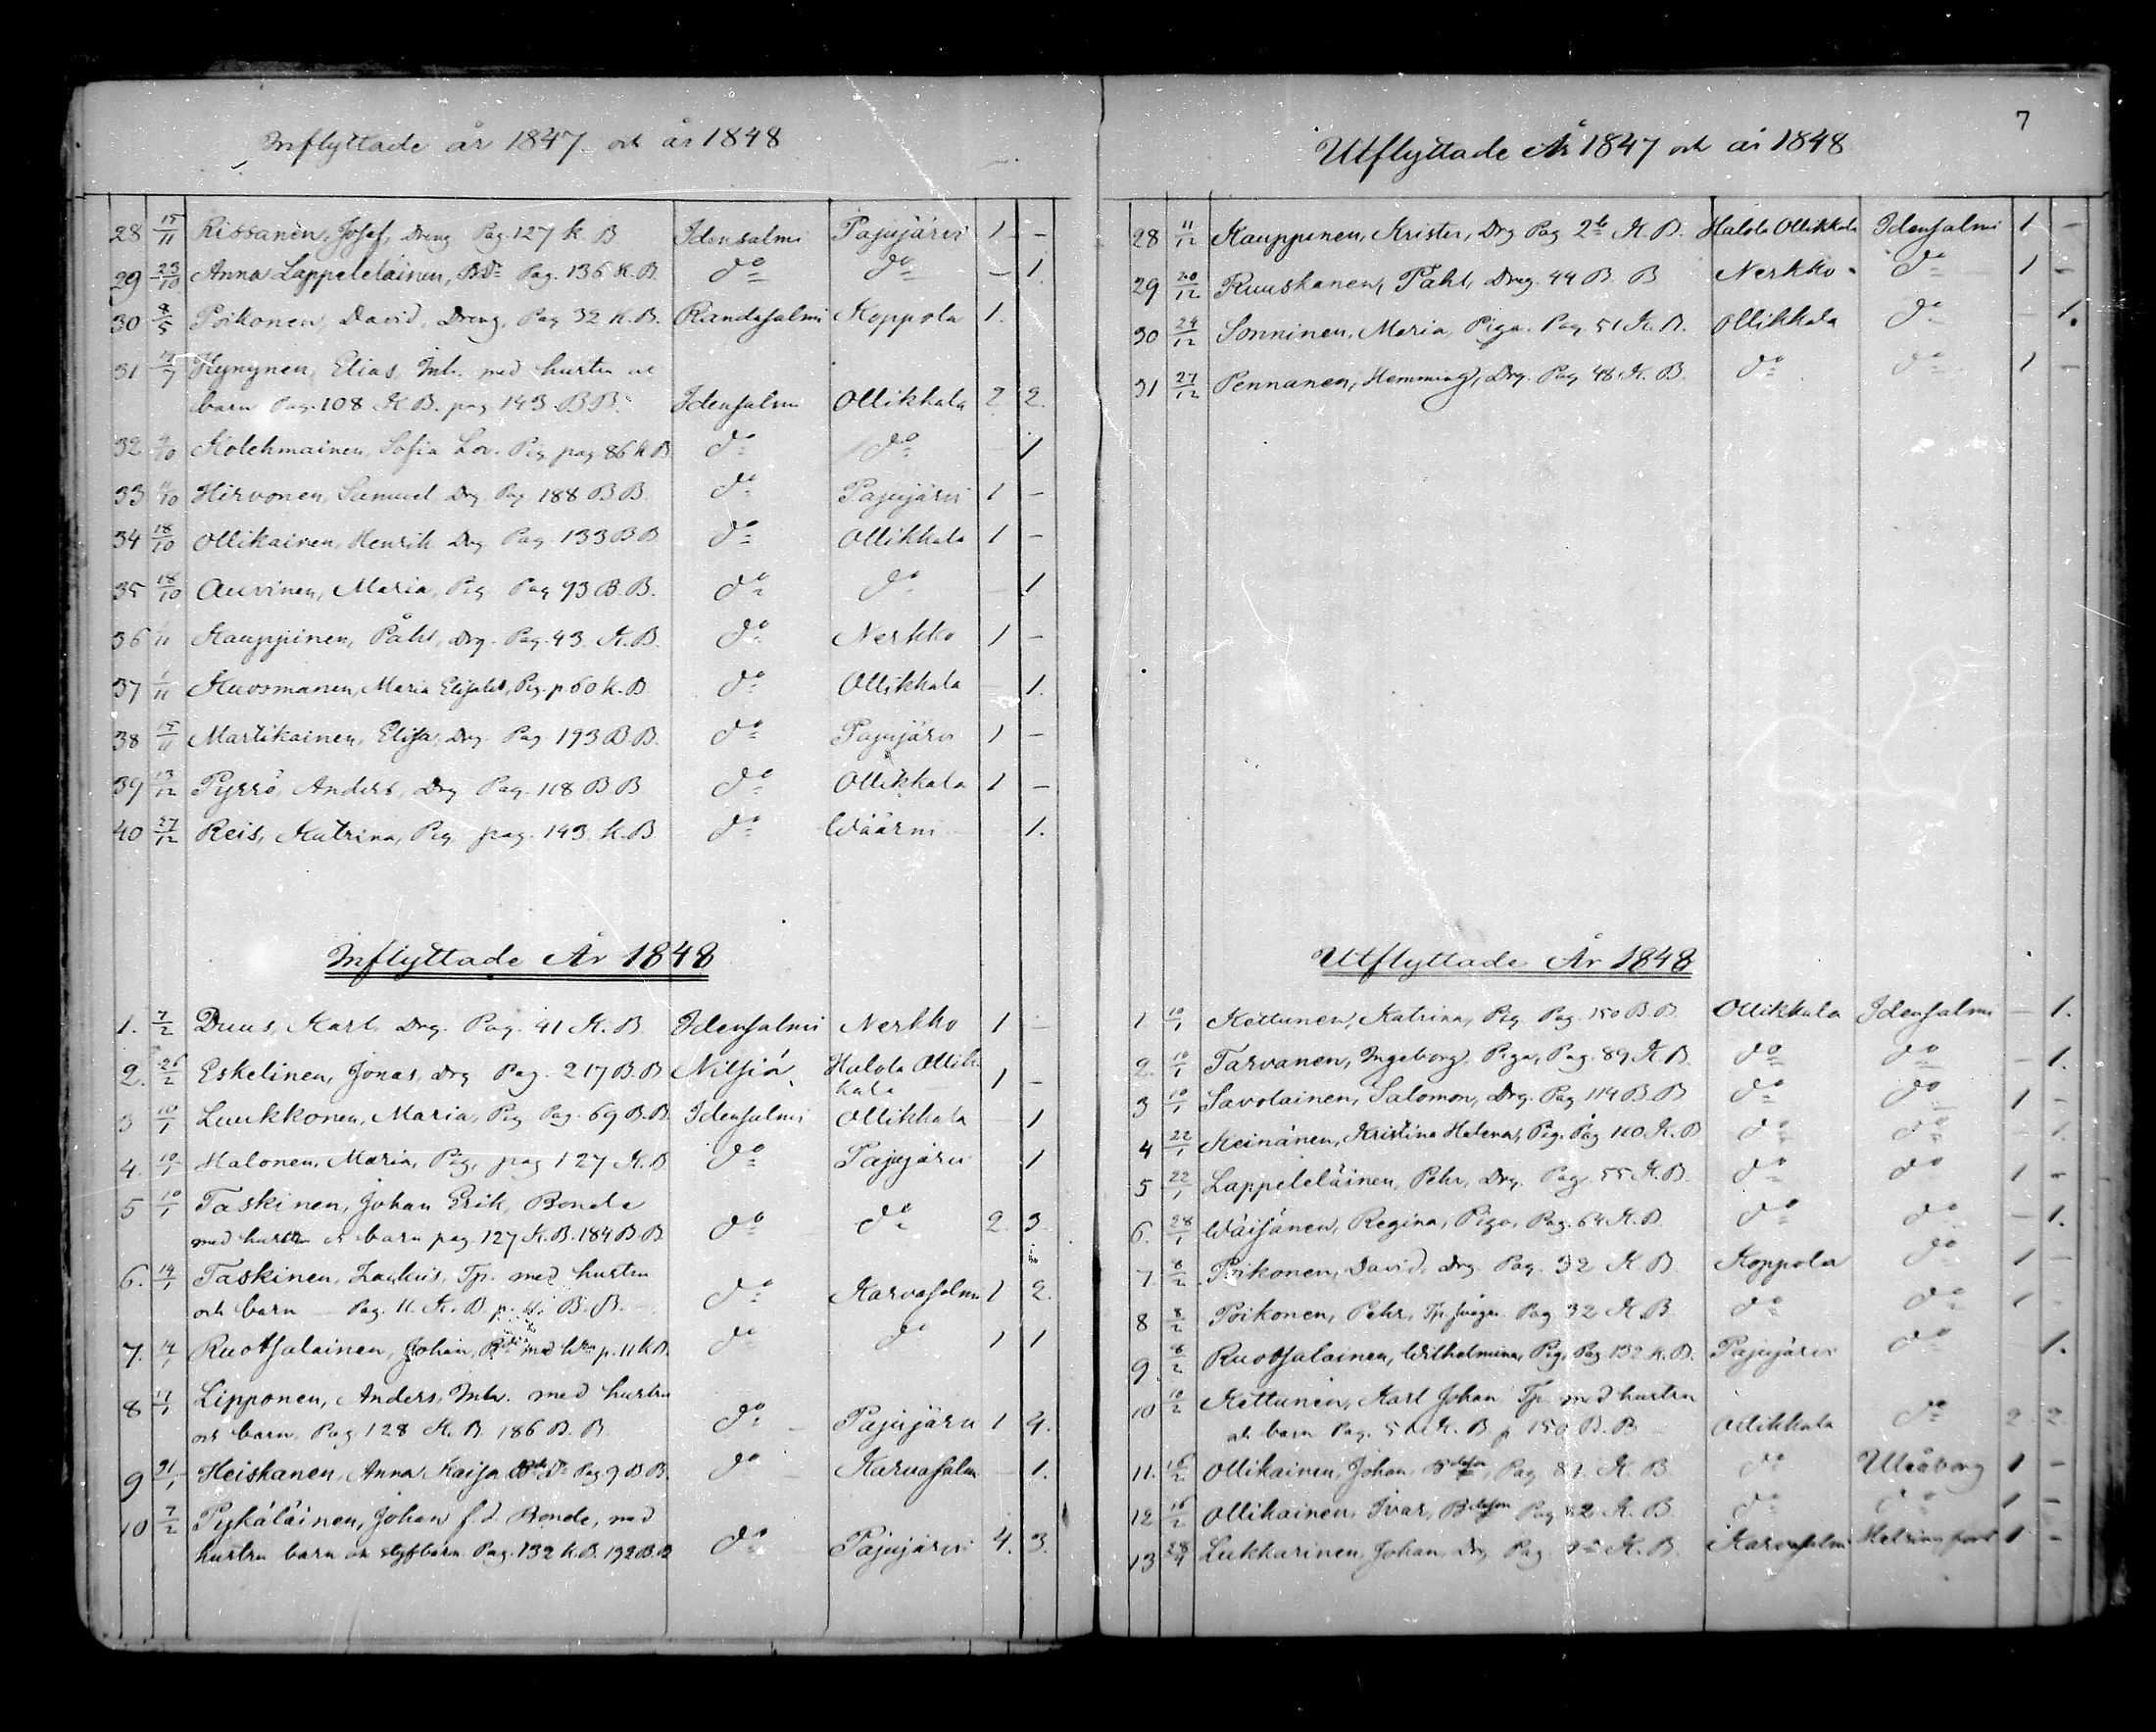 Inflyttade år 1847 och år 1848
28 15/11 Rissanen, Josef, Dreng Pag. 127 K. B Idensalmi Pajujärvi 1 -
29 23/10 Anna Lappeleläinen, BDr Pag. 136 K. B. do do - 1.
30 8/5 Poikonen, David, Dreng. Pag 32 K. B. Randasalmi Koppola 1.
31 Hynynen, Elias Inh. med hustru och
barn Pag. 108 K B. pag. 143 B B. Idensalmi Ollikkala 2 2.
32 Kolehmainen, Sofia Lov. Pig pag 86 K B do do 1
33 11/10 Hirvonen, Samuel Drg Pag 188 B B. do Pajujärvi 1 -
34 18/10 Ollikainen, Henrik Drg Pag. 133 B B do Ollikkala 1 -
35 18/10 Auvinen, Maria, Pig Pag 93 B. B. do do 1
36 1/11 Kauppinen, Påhl, Drg. Pag. 43. K. B. do Nerkko 1 -
37 1/11 Kuosmanen, Maria Elisabet, Pig. p 60 K. B do Ollikkala 1.
38 15/11 Martikainen, Elisa, Drg. Pag 193 B B. do Pajujärvi 1 -
39 13/12 Pyrrö, Anders, Drg Pag. 118 B B do Ollikkala 1 -
40 27/12 Reis, Katrina, Pig pag. 143. K. B do Wäärni 1.
Inflyttade År 1848
1. 7/2 Duus, Karl, Drg. Pag. 41 K. B. Idensalmi Nerkko 1 -
2. 26/2 Eskelinen, Jonas, Drg Pag. 217 B. B Nilsiä. Halola Ollik
kala 1 -
3 10/1 Luukkonen, Maria, Pig Pag. 69 B. B. Idensalmi Ollikkala 1
4. 10/1 Halonen, Maria, Pig, pag 127 K. B do Pajujärvi 1
5 10/1 Taskinen, Johan Erik, Bonde
med hustru och barn pag. 127 K. B. 184 B. B do do 2. 3.
6. 14/1 Taskinen, Zachris, Tp. med hustru
och barn Pag. 11. K. B. p. 11. B. B. do Karvasalmi 1 2.
7. 14/1 Ruotsalainen, Johan, med p. 11 K B. do do 1 1
8 17/1 Lipponen, Anders, Inh. med hustru
och barn, Pag. 128 K. B. 186 B. B. do Pajujärvi 1 4.
9 21/1 Heiskanen, Anna Kaisa Pag 9 B B. do Karvasalmi 1.
10 7/2 Pykäläinen, Johan f. d. Bonde, med
hustru barn och styfbarn. Pag. 132 K. B. 192 B. B do Pajujärvi 4. 3.
7
Utflyttade År 1847 och år 1848
28 11/12 Kauppinen, Krister, Drg Pag 2b K. B. Halola Ollikkala Idensalmi 1 -
29 20/12 Ruuskanen, Påhl, Drg. 44 B. B Nerkko do 1 -
30 24/12 Sonninen, Maria, Piga. Pag. 51 K. B. Ollikkala do - 1.
31 27/12 Pennanen, Hemming, Drg. Pag 48 K. B. do do 1 -
Utflyttade År 1848
1 10/1 Kettunen, Katrina, Pig. Pag. 150 B. B. Ollikkala Idensalmi - 1.
2. 10/1 Tarvanen, Ingeborg, Piga, Pag. 89 K. B. do do - 1.
3 10/1 Savolainen, Salomon, Drg. Pag 114 B. B do do 1 -
4 22/1 Keinänen, Kristina Helena, Pig. Pag 110 K. B do do 1.
5 22/1 Lappeleläinen, Pehr, Drg. Pag. 55 K. B. do do 1 -
6. 28/1 Wäisänen, Regina, Piga, Pag. 64 K. B. do do - 1.
7. 8/2 Poikonen, David, Drg. Pag. 32 K. B. Koppola do 1 -
8 8/2 Poikonen, Pehr, Tp. Pag 32 K. B do do 1 -
9 8/2 Ruotsalainen, Wilhelmina, Pig, Pag 132 K. B. Pajujärvi do 1.
10 10/2 Kettunen, Karl Johan Tp. med hustru
och barn Pag. 51 K. B p 150 B. B Ollikkala do 2 2.
11. 16/2 Ollikainen, Johan, Pag 81. K. B. do Uleåborg 1 -
12 16/2 Ollikainen, Ivar, Bdeson Pag 82 K. B. do do 1 -
13 28/4 Lukkarinen, Johan, Drg Pag. K. B. Karvasalmi Helsingfors 1 -